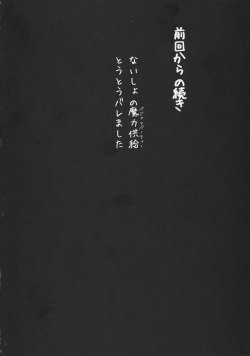 前回からの続き
ないしょの魔力供給
とうとうバレました